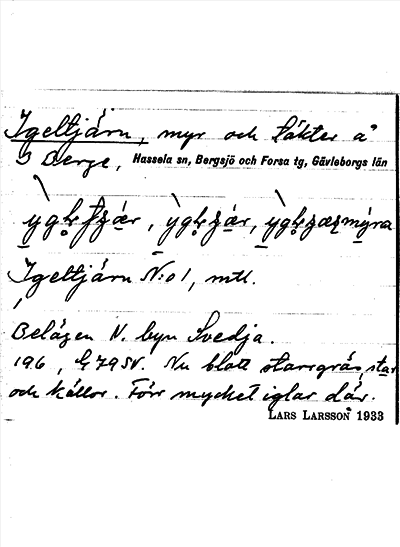 Igeltjärn, myr och täkter å
S Berge, Hassela sn, Bergsjö och Forsa tg, Gävleborgs län
Igeltjärn N:o 1, mtl.
Belägen N. byn Svedja.
196, G 79 SV. Nu blott starrgräs, star
och källor. Förr mycket iglar där.
LARS LARSSON 1933